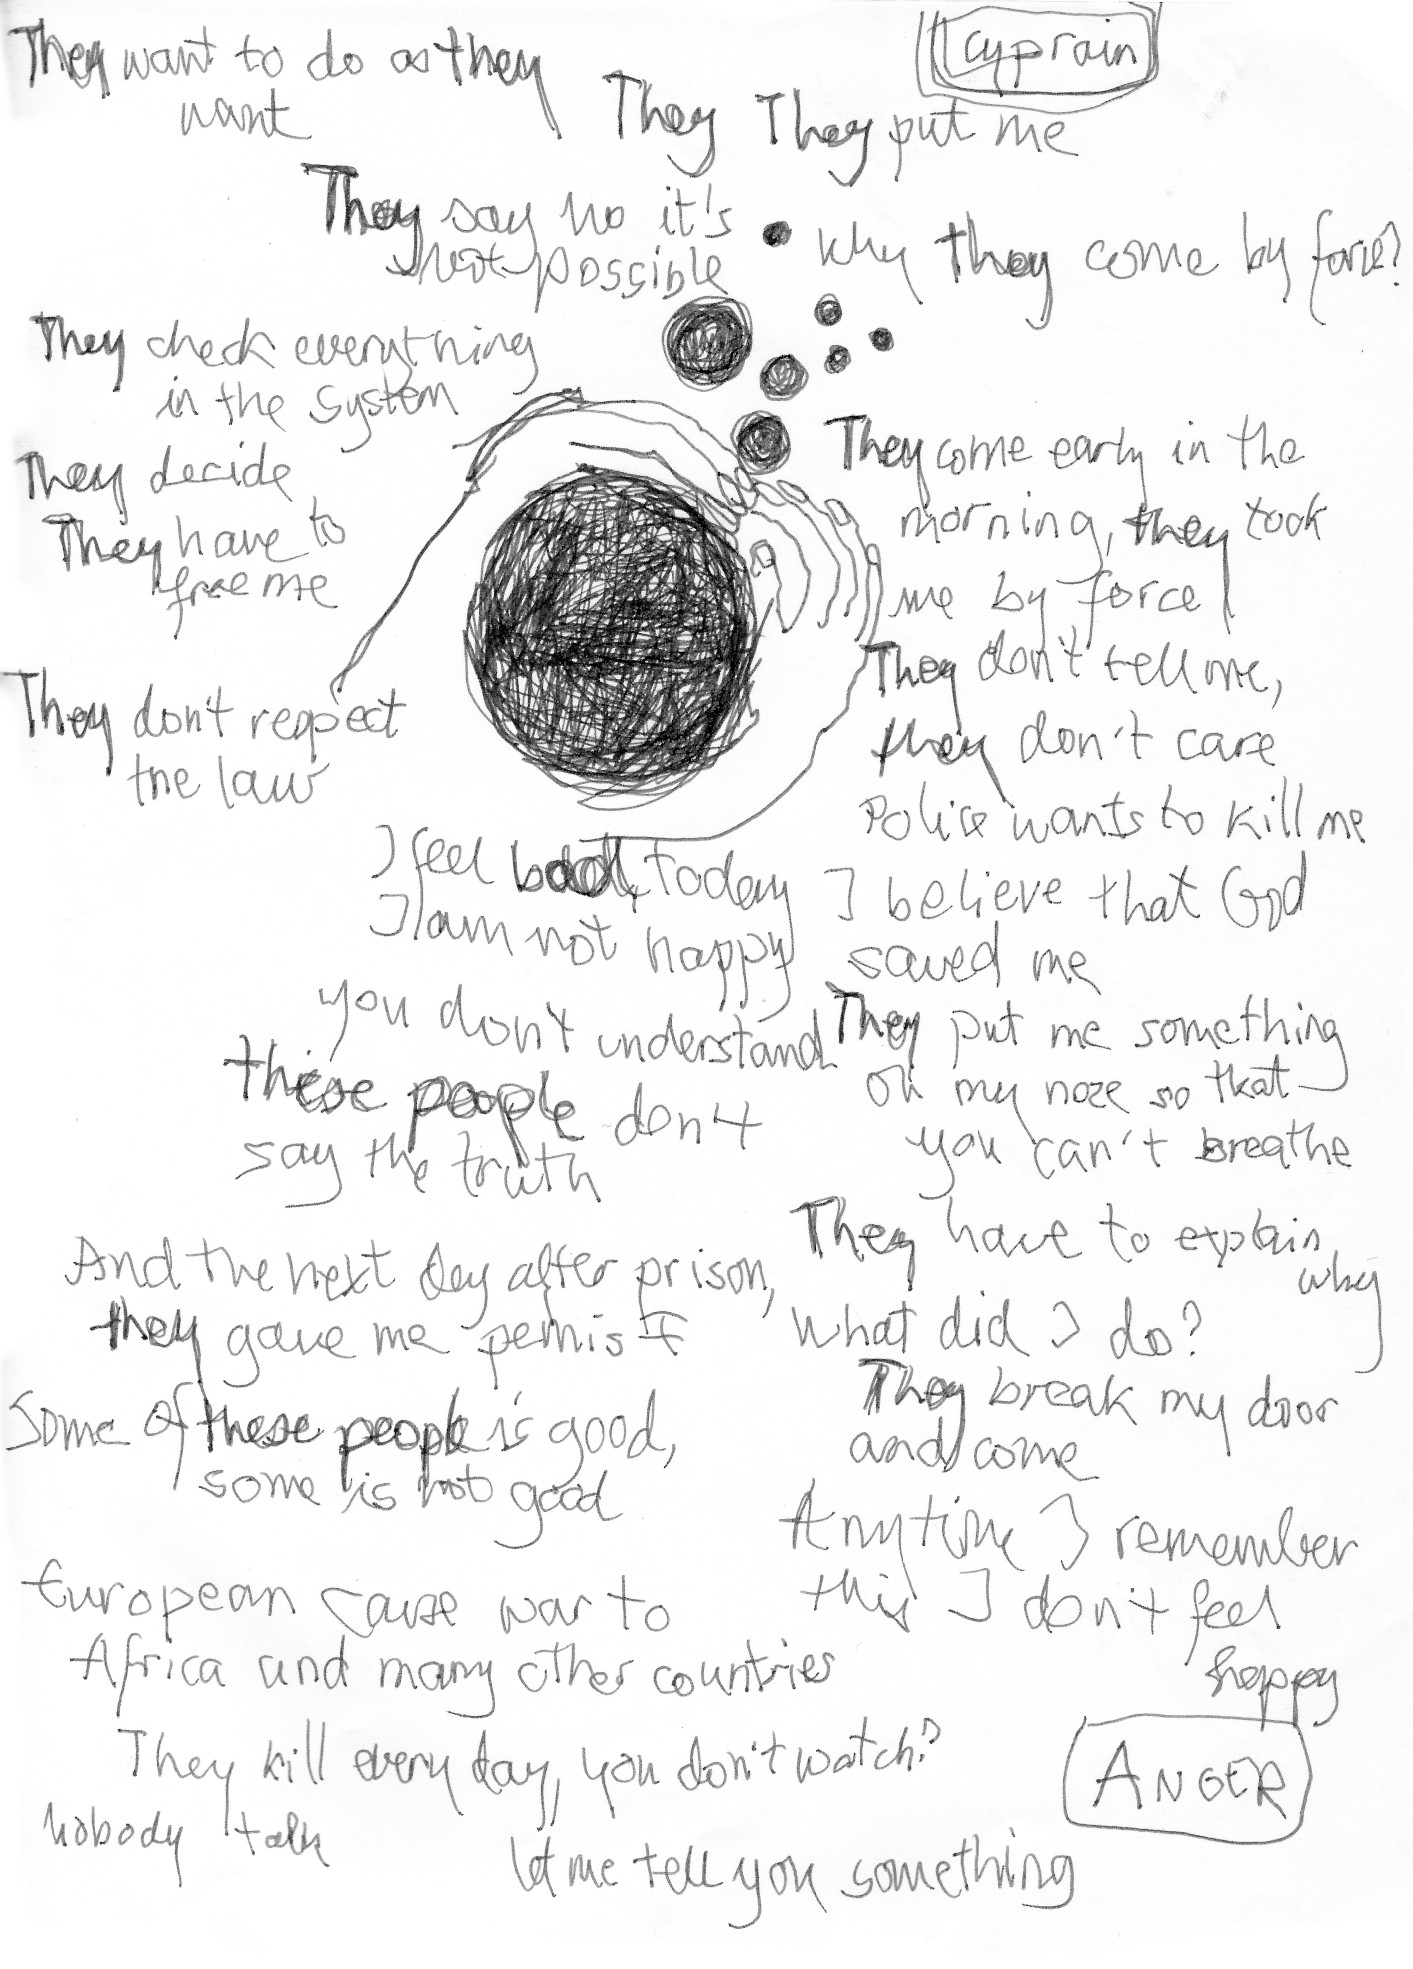 cyprain
They want to do as they
want
They They put me
They say no it's
not possible
why they come by force?
They check everything
in the system
They decide
They have to
free me
They don't respect
the law
They come early in the
morning, they took
me by force
They don't tell me,
they don't care
Police wants to kill me
I believe that God
saved me
I feel bad, today
I am not happy
you don't understand
these people don't
say the truth
They put me something
on my noze so that
you can't breathe
They have to explain
why
what did I do?
They break my door
and come
Anytime I remember
this I don't feel
happy
And the next day after prison,
they gave me
Some of these people is good,
some is not good
European cause war to
Africa and many other countries
They kill every day, you don't watch?
nobody talk
let me tell you something
ANGER